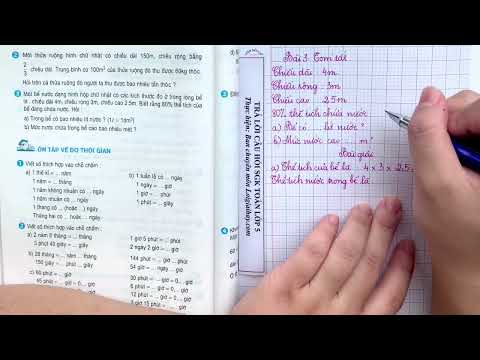 2 Một thửa ruộng hình chữ nhật có chiều dài 150m, chiều rộng bằng
2
3 chiều dài. Trung bình cứ 100m² của thửa ruộng đó thu được 60kg thóc.
Hỏi trên cả thửa ruộng đó người ta thu được bao nhiêu tấn thóc ?
3 Một bể nước dạng hình hộp chữ nhật có các kích thước đo ở trong lòng bể
là : chiều dài 4m, chiều rộng 3m, chiều cao 2,5m. Biết rằng 80% thể tích của
bể đang chứa nước. Hỏi :
a) Trong bể có bao nhiêu lít nước ? (1l = 1dm³)
b) Mức nước chứa trong bể cao bao nhiêu mét ?
ÔN TẬP VỀ ĐO THỜI GIAN
1 Viết số thích hợp vào chỗ chấm :
a) 1 thế kỉ = ... năm
1 năm = ... tháng
1 năm không nhuận có ... ngày
1 năm nhuận có ... ngày
1 tháng có ... (hoặc ...) ngày
Tháng hai có ... hoặc ... ngày
b) 1 tuần lễ có ... ngày
1 ngày = ... giờ
1 giờ = ... phút
1 phút = ... giây
2 Viết số thích hợp vào chỗ chấm :
a) 2 năm 6 tháng = ... tháng
3 phút 40 giây = ... giây
1 giờ 5 phút = ... phút
2 ngày 2 giờ = ... giờ
b) 28 tháng = ... năm ... tháng
150 giây = ... phút ... giây
144 phút = ... giờ ... phút
54 giờ = ... ngày ... giờ
c) 60 phút = ... giờ
45 phút =
15 phút =
1 giờ 30 phút =
30 phút = ... giờ = 0,... giờ
6 phút = ... giờ = 0,... giờ
12 phút = ... giờ = 0,... giờ
3 giờ 15 phút = ... giờ
TRẢ LỜI CÂU HỎI SGK TOÁN LỚP 5
Thực hiện: Ban chuyên môn Loigiaihay.com
Bài 3 Tóm tắt
Chiều dài : 4m
Chiều rộng : 3m
Chiều cao : 2,5m
80% thể tích chứa nước
a) Bể có ... lít nước ?
b) Mức nước cao ... m ?
Bài giải
a) Thể tích của bể là : 4 x 3 x 2,5
Thể tích nước trong bể là :